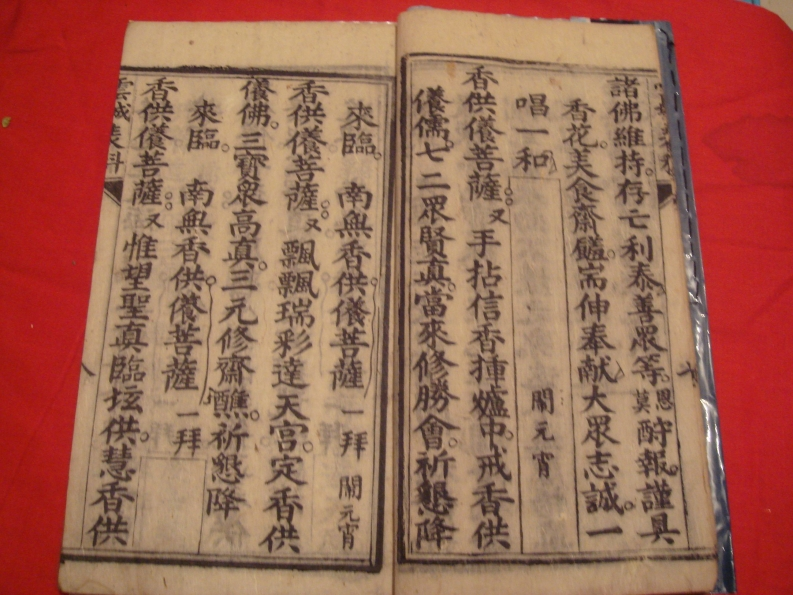 諸佛維持。存亡利泰。善眾等。恩莫酧報。謹具
香花美食齋饈。耑伸奉献大眾志誠。一
唱一和 鬧元宵
香供養菩薩。又 手拈信香揰爐中。戒香供
養儒。七二眾賢真。當來修勝會。祈懇降
來臨。 南無香供養菩薩 一拜 鬧元宵
香供養菩薩。又 飄飄瑞彩達天宮。定香供
養佛。三寶眾高真。三元修齋醮。祈懇降
來臨。 南無香供養菩薩 一拜
香供養菩薩。又 惟望聖真臨玹供。慧香供